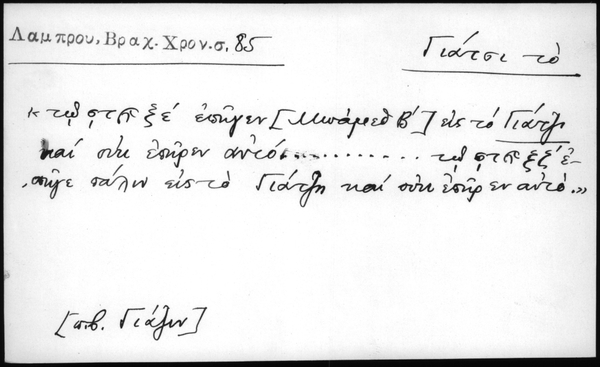 Λαμπρου, Βραχ. Χρον. σ. 85
Γιάτσι τὸ
«τῷ ϛϡξε΄ ἐπῆγεν [Μωάμεθ Β΄] εἰς τὸ Γιάτζι
καί οὐκ ἐπῆρεν αὐτό............. τῷ ϛϡξξ΄ ἐ-
πῆγε πάλιν εἰς τὸ Γιάτζη καί οὐκ ἐπῆρεν αὐτό.»
[πβ. Γιάζιν]